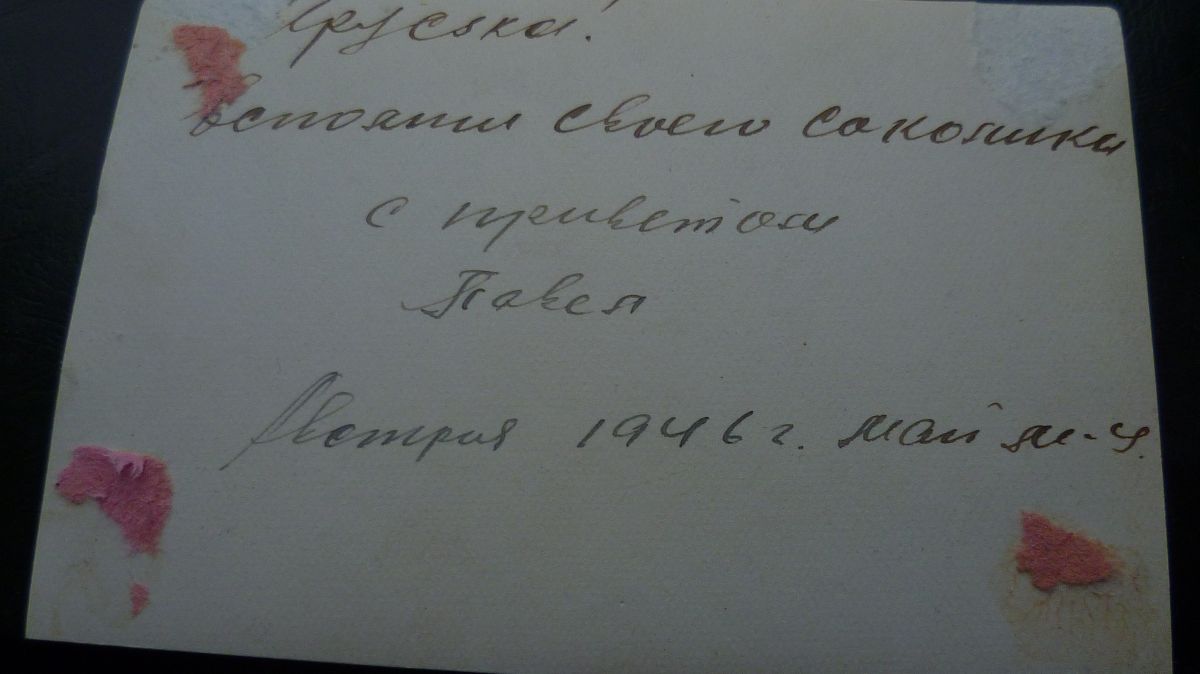 Груська!
вспомни своего соколика
с приветом
Павел
Австрия 1946 г. май м-ц.